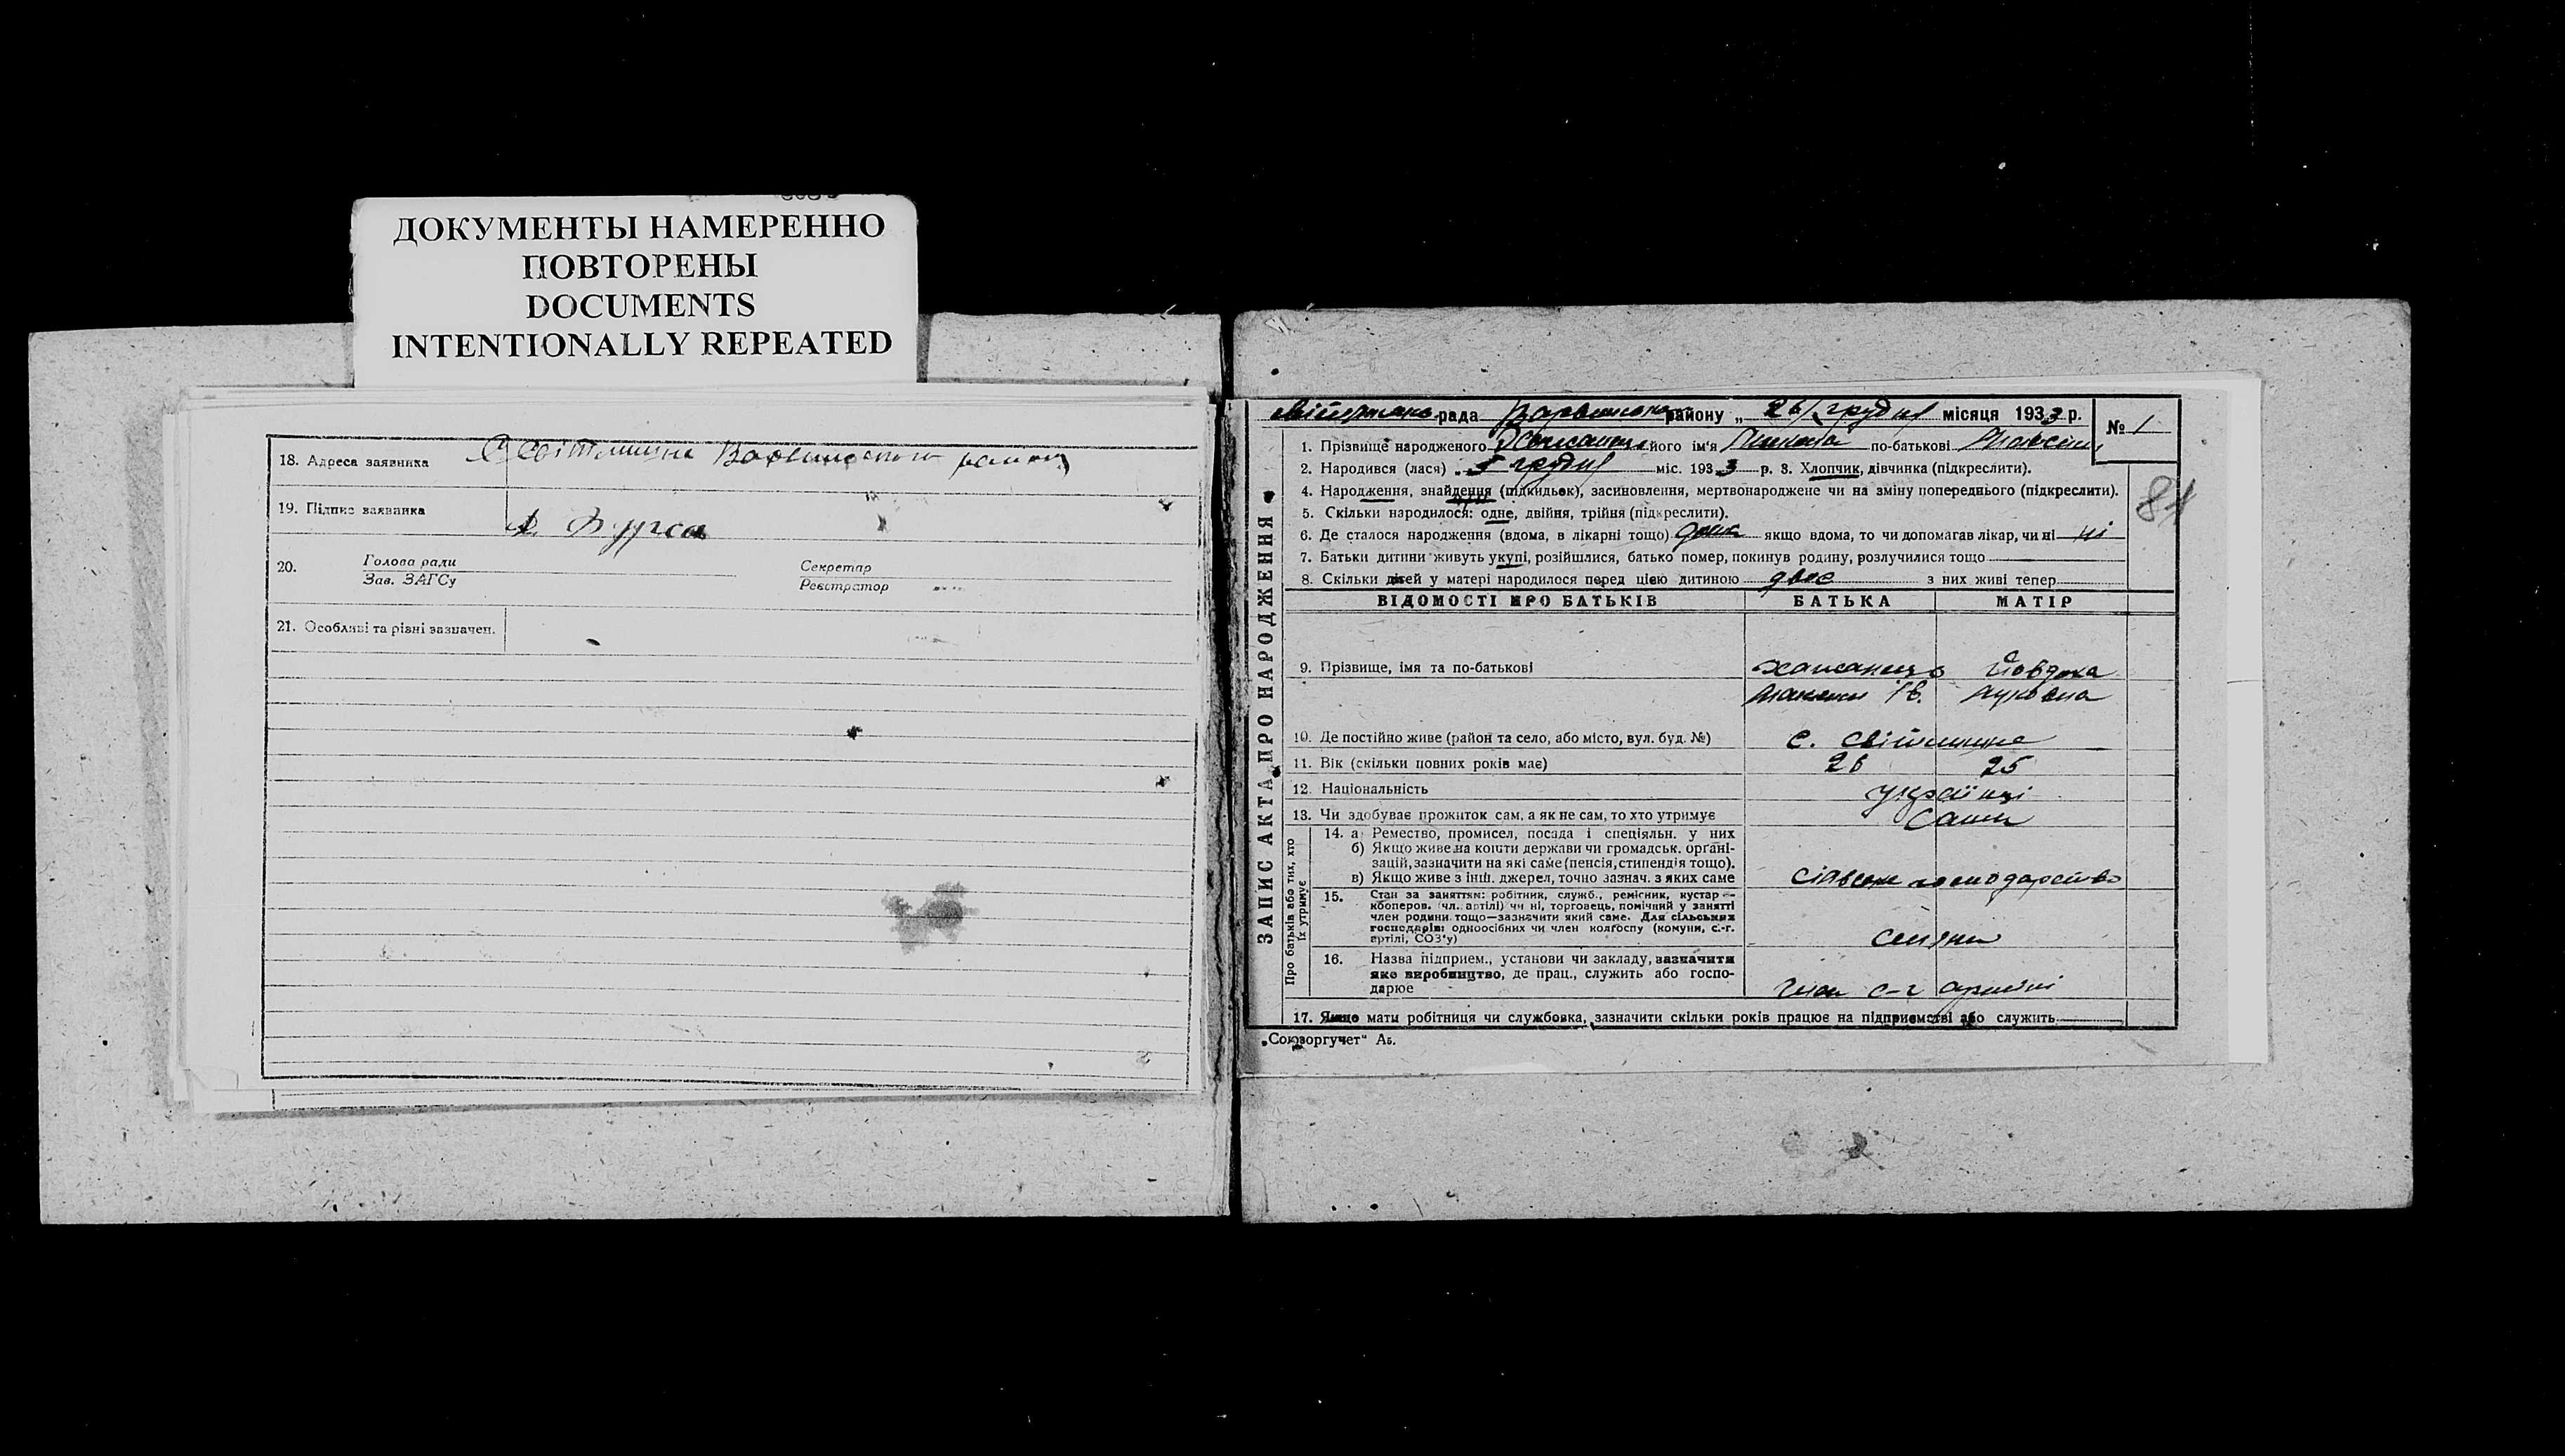 ДОКУМЕНТЫ НАМЕРЕННО
ПОВТОРЕНЫ
DOCUMENTS
INTENTIONALLY REPEATED
18. Адреса заявника С Світлична Варвинського району
19. Підпис заявника Бурса
20. Голова ради Секретар
Зав. ЗАГСу Реєстратор
21. Особливі та рівні зазначен.
ЗАПИС АКТА ПРО НАРОДЖЕННЯ
рада Варвинського району „ 26/ грудня місяця 1933 р. № 1
1. Прізвище народженого його ім'я Микола по-батькові Максим
2. Народився (лася) 5 грудня міс. 1933 р. 3. Хлопчик, дівчинка (підкреслити).
4. Народження, знайдення (підкидьок), засиновлення, мертвонароджене чи на зміну попереднього (підкреслити).
81
5. Скільки народилося: одне, двійня, трійня (підкреслити).
6. Де сталося народження (вдома, в лікарні тощо) дома якщо вдома, то чи допомагав лікар, чи ні ні
7. Батьки дитини живуть укупі, розійшлися, батько помер, покинув родину, розлучилися тощо
8. Скільки дітей у матері народилося перед цією дитиною двоє з них живі тепер
ВІДОМОСТІ ПРО БАТЬКІВ БАТЬКА МАТІР
9. Прізвище, імя та по-батькові Йовдоха
Максим Ів. Луковна
10. Де постійно живе (район та село, або місто, вул. буд. №) с. Світлична
11. Вік (скільки повних років має) 26 25
12. Національність українці
13. Чи здобуває прожиток сам, а як не сам, то хто утримує Сами
Про батьків або тих, хто їх утримує
14. а) Ремество, промисел, посада і спеціяльн. у них
б) Якщо живе на кошти держави чи громадськ. органі-
зацій, зазначити на які саме (пенсія, стипендія тощо).
в) Якщо живе з інш. джерел, точно зазнач. з яких саме сільське господарство
15. Стан за заняттям: робітник, служб., ремісник, кустар —
кооперов. (чл. артілі) чи ні, торговець, помічний у занятті
член родини тощо—зазначити який саме. Для сільських
господарів: одноосібних чи член колгоспу (комуни, с.-г.
артілі, СОЗ'у) селяни
16. Назва підприєм., установи чи закладу, зазначити
яке виробництво, де прац., служить або госпо-
дарює член с-г артілі
17. Якщо мати робітниця чи службовка, зазначити скільки років працює на підприємстві або служить
„Союзоргучет“ А5.